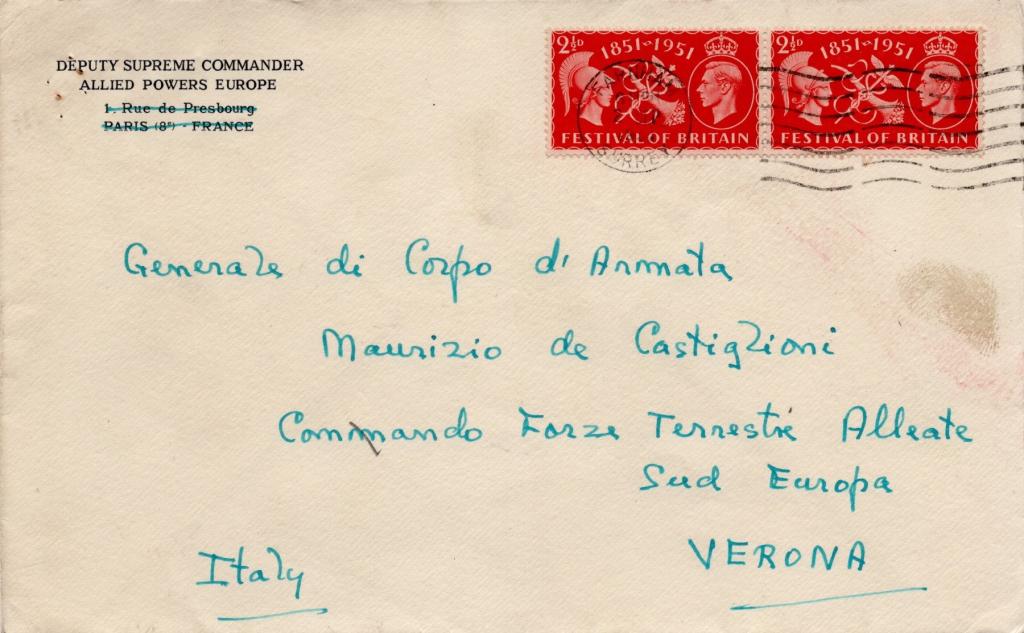 DEPUTY SUPREME COMMANDER
ALLIED POWERS EUROPE
1, Rue de Presbourg
PARIS (8e) - FRANCE
2½D 1851~1951
FESTIVAL OF BRITAIN
2½D 1851~1951
FESTIVAL OF BRITAIN
SURREY
Generale di Corpo d'Armata
Maurizio de Castiglioni
Commando Forze Terrestri Alleate
Sud Europa
VERONA
Italy